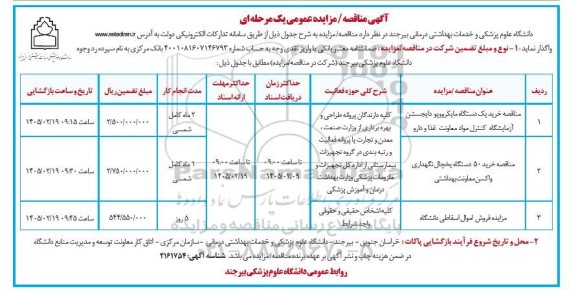 آگهی مناقصه / مزایده عمومی یک مرحله ای
دانشگاه علوم پزشکی و خدمات بهداشتی درمانی بیرجند در نظر دارد مناقصه/ مزایده به شرح جدول ذیل از طریق سامانه تدارکات الکترونیکی دولت به آدرس www.setadiran.ir
واگذار نماید: ۱- نوع و مبلغ تضمین شرکت در مناقصه/مزایده: ضمانتنامه معتبر بانکی یا واریز نقدی وجه به حساب شماره ۴۰۰۱۰۸۱۶۰۷۱۴۶۷۹۳ بانک مرکزی به نام سپرده رد وجوه
دانشگاه علوم پزشکی بیرجند (شرکت در مناقصه/مزایده) مطابق با جدول ذیل:
ردیف
عنوان مناقصه / مزایده
شرح کلی حوزه فعالیت
حداکثر زمان دریافت اسناد
حداکثر مهلت ارائه اسناد
مدت انجام کار
مبلغ تضمین ریال
تاریخ و ساعت بازگشایی
۱
مناقصه خرید یک دستگاه مایکروویو دایجستشن
آزمایشگاه کنترل مواد معاونت غذا و دارو
کلیه دارندگان پروانه طراحی و
بهره برداری از وزارت صنعت،
معدن و تجارت یا پروانه فعالیت
و رتبه بندی در گروه تجهیزات
بیمارستانی از اداره کل تجهیزات و
ملزومات پزشکی وزارت بهداشت
درمان و آموزش پزشکی
تا ساعت ۰۹:۰۰
۱۴۰۵/۰۲/۰۹
تا ساعت ۰۹:۰۰
۱۴۰۵/۰۲/۱۹
۲ ماه کامل
شمسی
۲/۵۰۰/۰۰۰/۰۰۰
ساعت ۰۹:۱۵ ۱۴۰۵/۰۲/۱۹
۲
مناقصه خرید ۵۰ دستگاه یخچال نگهداری
واکسن معاونت بهداشتی
۱ ماه کامل
شمسی
۲/۷۵۰/۰۰۰/۰۰۰
ساعت ۰۹:۳۰ ۱۴۰۵/۰۲/۱۹
۳
مزایده فروش اموال اسقاطی دانشگاه
کلیه اشخاص حقیقی و حقوقی
واجد شرایط
۵ روز
۵۴۴/۵۵۰/۰۰۰
ساعت ۰۹:۴۵ ۱۴۰۵/۰۲/۱۹
۲- محل و تاریخ شروع فرآیند بازگشایی پاکات: خراسان جنوبی - بیرجند- دانشگاه علوم پزشکی و خدمات بهداشتی درمانی - سازمان مرکزی - اتاق کار معاونت توسعه و مدیریت منابع دانشگاه
در ضمن هزینه چاپ و نشر آگهی بر عهده برنده مناقصه/ مزایده می باشد. شناسه آگهی: ۲۱۶۱۷۵۴
روابط عمومی دانشگاه علوم پزشکی بیرجند